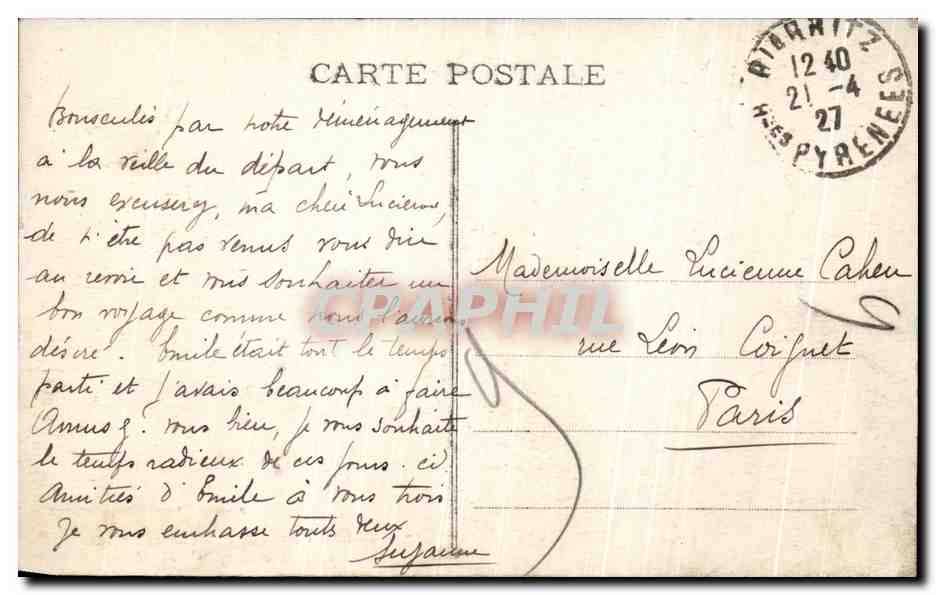 CARTE POSTALE
BIARRITZ
12 40
21 -4
27
Htes PYRENEES
Bousculés par notre déménagement
à la veille du départ, vous
nous excuserez, ma chère Lucienne,
de n'être pas venus vous dire
au revoir et vous souhaiter un
bon voyage comme nous l'aurions
désiré. Emile était tout le temps
parti et j'avais beaucoup à faire
Amusez-vous bien, je vous souhaite
le temps radieux de ces jours-ci
Amitiés d'Emile à vous trois
Je vous embrasse toutes deux
Suzanne
Mademoiselle Lucienne Cahen
6 rue Léon Coignet
Paris
CPAPHIL